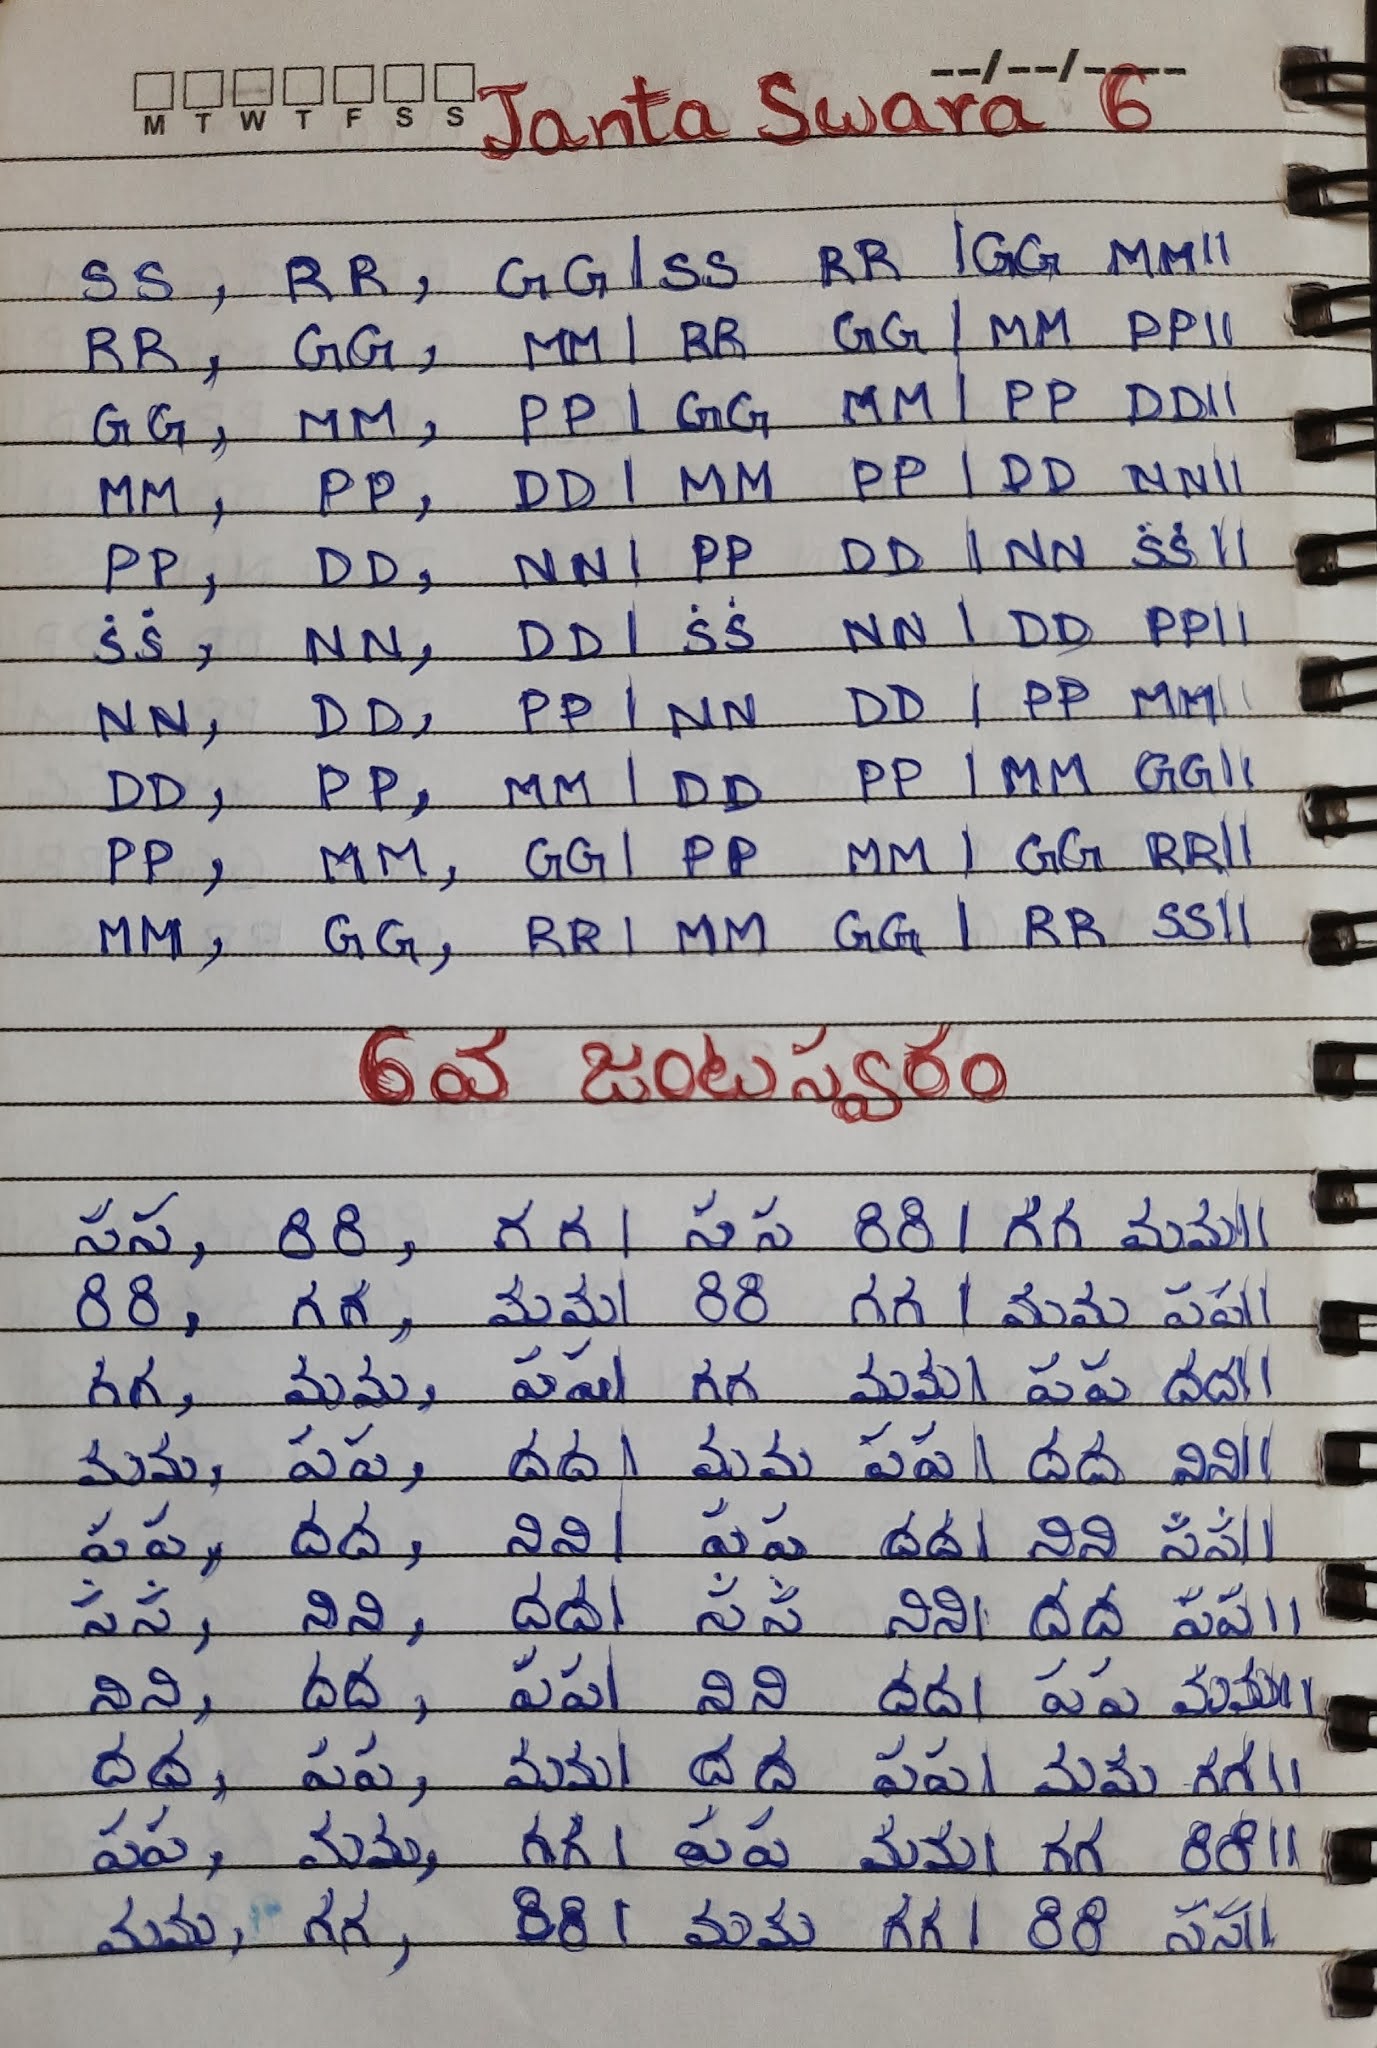 --/--/----
M T W T F S S Janta Swara 6
SS, RR, GG | SS RR | GG MM ||
RR, GG, MM | RR GG | MM PP ||
GG, MM, PP | GG MM | PP DD ||
MM, PP, DD | MM PP | DD NN ||
PP, DD, NN | PP DD | NN ṠṠ ||
ṠṠ, NN, DD | ṠṠ NN | DD PP ||
NN, DD, PP | NN DD | PP MM ||
DD, PP, MM | DD PP | MM GG ||
PP, MM, GG | PP MM | GG RR ||
MM, GG, RR | MM GG | RR SS ||
6వ జంటస్వరం
సస, రిరి, గగ | సస రిరి | గగ మమ ||
రిరి, గగ, మమ | రిరి గగ | మమ పప ||
గగ, మమ, పప | గగ మమ | పప దద ||
మమ, పప, దద | మమ పప | దద నిని ||
పప, దద, నిని | పప దద | నిని స̇స̇ ||
స̇స̇, నిని, దద | స̇స̇ నిని | దద పప ||
నిని, దద, పప | నిని దద | పప మమ ||
దద, పప, మమ | దద పప | మమ గగ ||
పప, మమ, గగ | పప మమ | గగ రిరి ||
మమ, గగ, రిరి | మమ గగ | రిరి సస ||